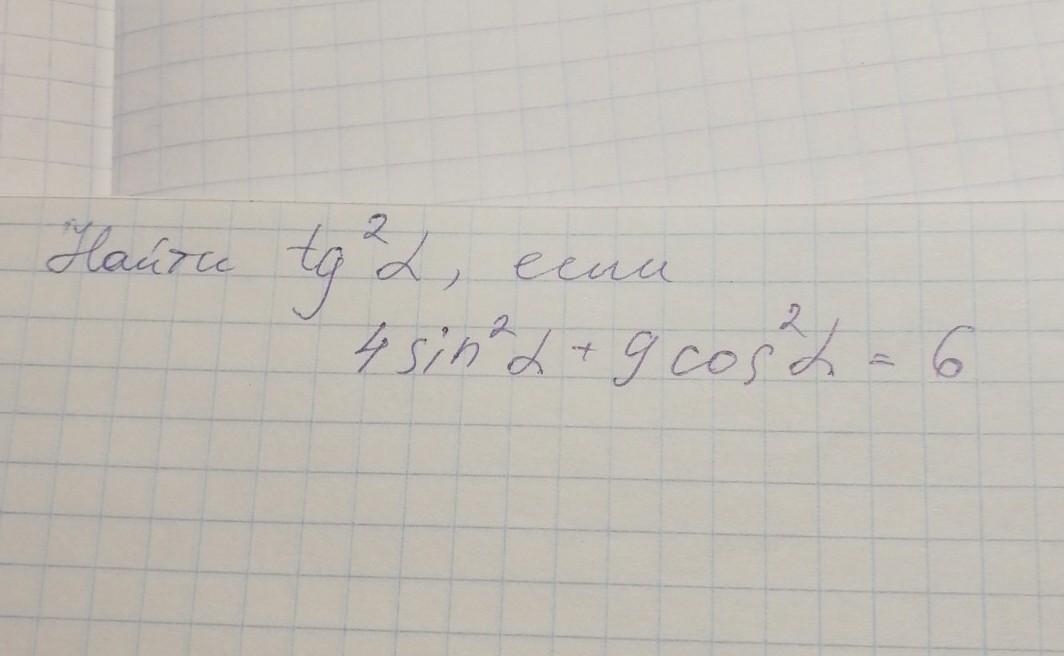 Найти tg²α, если
4 sin²α + 9 cos²α = 6